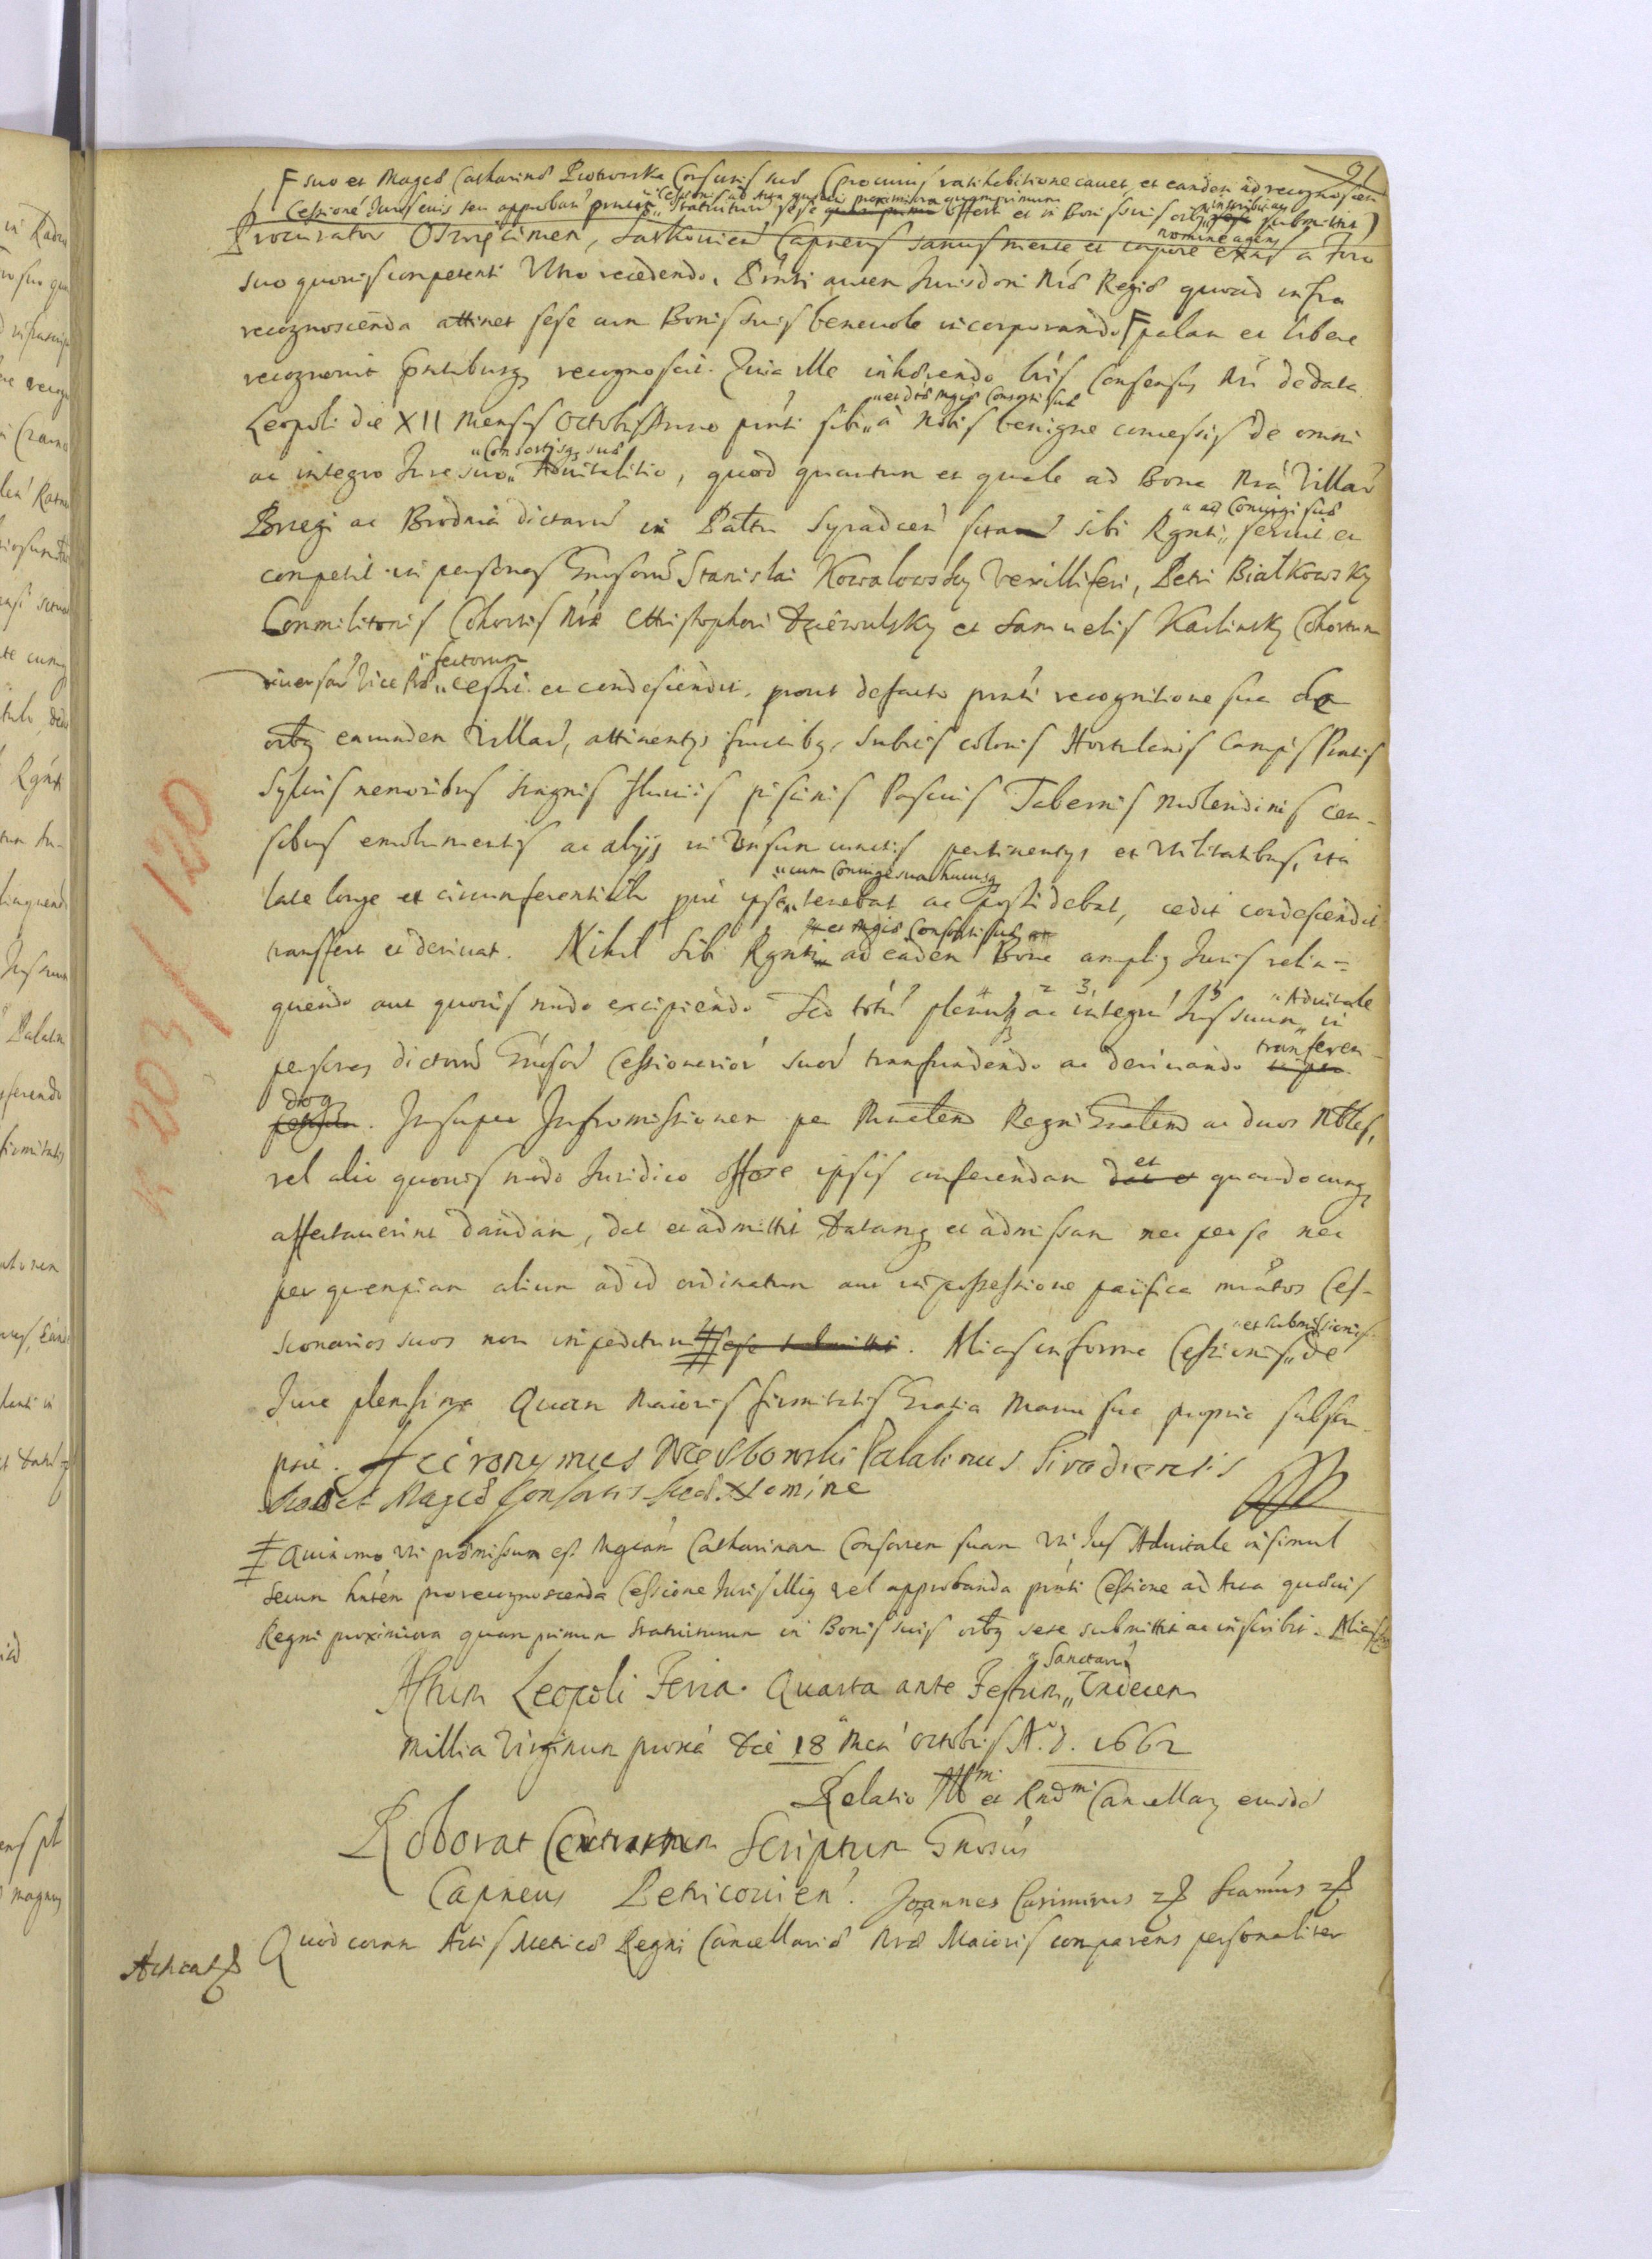 91
F suo et Magcae Catharinae Piotrowska Consortis suae (pro cuius ratihabitione cauet, et eandem ad recognoscen
Cessione Juris eius seu approban Cessionis ad Acta quaeuis proximiora quamprimum Statuturu sese offert et in Bonis suis oibq inscribit ac submittit)
Procurator Oswięcimen, Sartouien Capneus sanus mente et corpore exns nomine agens a Foro
suo quouis competenti Vltro recedendo, Pnti autem Jurisdoni Nrae Regiae quoad infra
recognoscenda attinet sese cum Bonis suis beneuole incorporando F palam et libere
recognouit pntibusq recognoscit. Quia ille inhaerendo lris Consensus Nri de data
Leopoli die XII Mensis Octobris Anno pnti sibi „et dtae Mgcae Consorti suae a Nobis benigne concessis de omni
ac integro Jure suo „Consortisq suae Aduitalitio, quod quantum et quale ad Bona Nra Villar
Brzegi ac Brodnia dictaru in Paltu Syradien sita sibi Rgnti „ac Coniugi suae seruit et
competit in personas Gnsoru Stanislai Kowalowsky Vexilliferi, Petri Białkowsky
Commilitonis Cohortis Nrae Christophori Dzierulsky et Samuelis Karlinsky Cohortum
diuersar Vice Prae „fectorum cessit et condescendit, prout de facto pnti recognitione sua de
oibq earundem Villar, attinentys fructibq, Subtis colonis Hortulanis Campis Pratis
Syluis nemoribus stagnis fluuiis piscinis Pascuis Tabernis Molendinis cen-
sibus emolumentis ac alijs in Vnsum cunctis pertinentys et Vtilitatibus, ita
late longe et circumferentialr prt ipse „cum Coniuge sua hucusq tenebat ac possidebat, cedit condescendit
transfert et deriuat. Nihil sibi Rgnti et Mgcae Consorti suae ad eadem Bona ampliq Juris relin=
quendo aut quouis modo excipiendo Sed totu plenu ac integru Jus suum „Aduitale in
personas dictoru Gnsor Cessionarior suor transfundendo ac deriuando transferen
doq. Insuper Intromissionem per Mnctem Regni Gnalem ac duos Nbles,
vel alio quouis modo Juridico offose ipsis conferendam et quandocunq
affectauerint dandam, dat et admittit datamq et admissam nec per se nec
per quempiam alium ad id ordinatum aut in possessione pacifica mratos Ces-
sionarios suos non impediturum ‡ sese submittit. Alias in forma Cessionis „et submissionis de
Jure plenissima Quam maioris firmitatis Gratia Manu sua propria subscri
psit. Hieronymus Wierzbowski Palatinus Siradiensis
Suo et Magcae Consortis suae Nomine
‡ Quinimo Vti praemissum est Mgcam Catharinam Consortem suam Vti Jus Aduitale insimul
secum hntem pro recognoscenda Cessione Juris illiq vel approbanda pnti Cessione ad Acta quaeuis
Regni proximiora quamprimum Statuturum in Bonis suis oibq sese submittit ac inscribit. Alias
Actum Leopoli Feria Quarta ante Festum „Sanctaru Vndecem
Millia Virginum proxa die 18 Men Octobris A. D. 1662
Relatio Illmi et Rndmi Cancellary eiusde
Roborat Contractum Scriptum Gnosus
Capneus Petricouien. Joannes Casimirus
Acticat Quod coram Actis Metrices Regni Cancellariae Nrae Maioris comparens personaliter
R 203 / 120